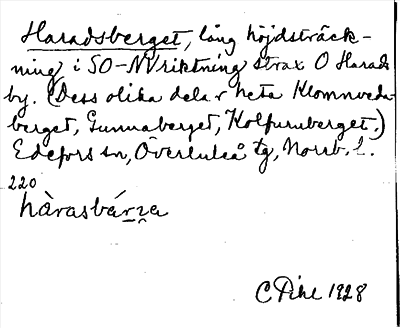 Haradsberget, lång höjdsträck-
ning i SO-NVriktning strax O Harads
by. (Dess olika delar heta Klomnveda-
berget, Gunnaberget, Kolfurnberget.)
Edefors sn, Överluleå tg, Norrb. l.
220
hàrasbárʒa
C Pihl 1928